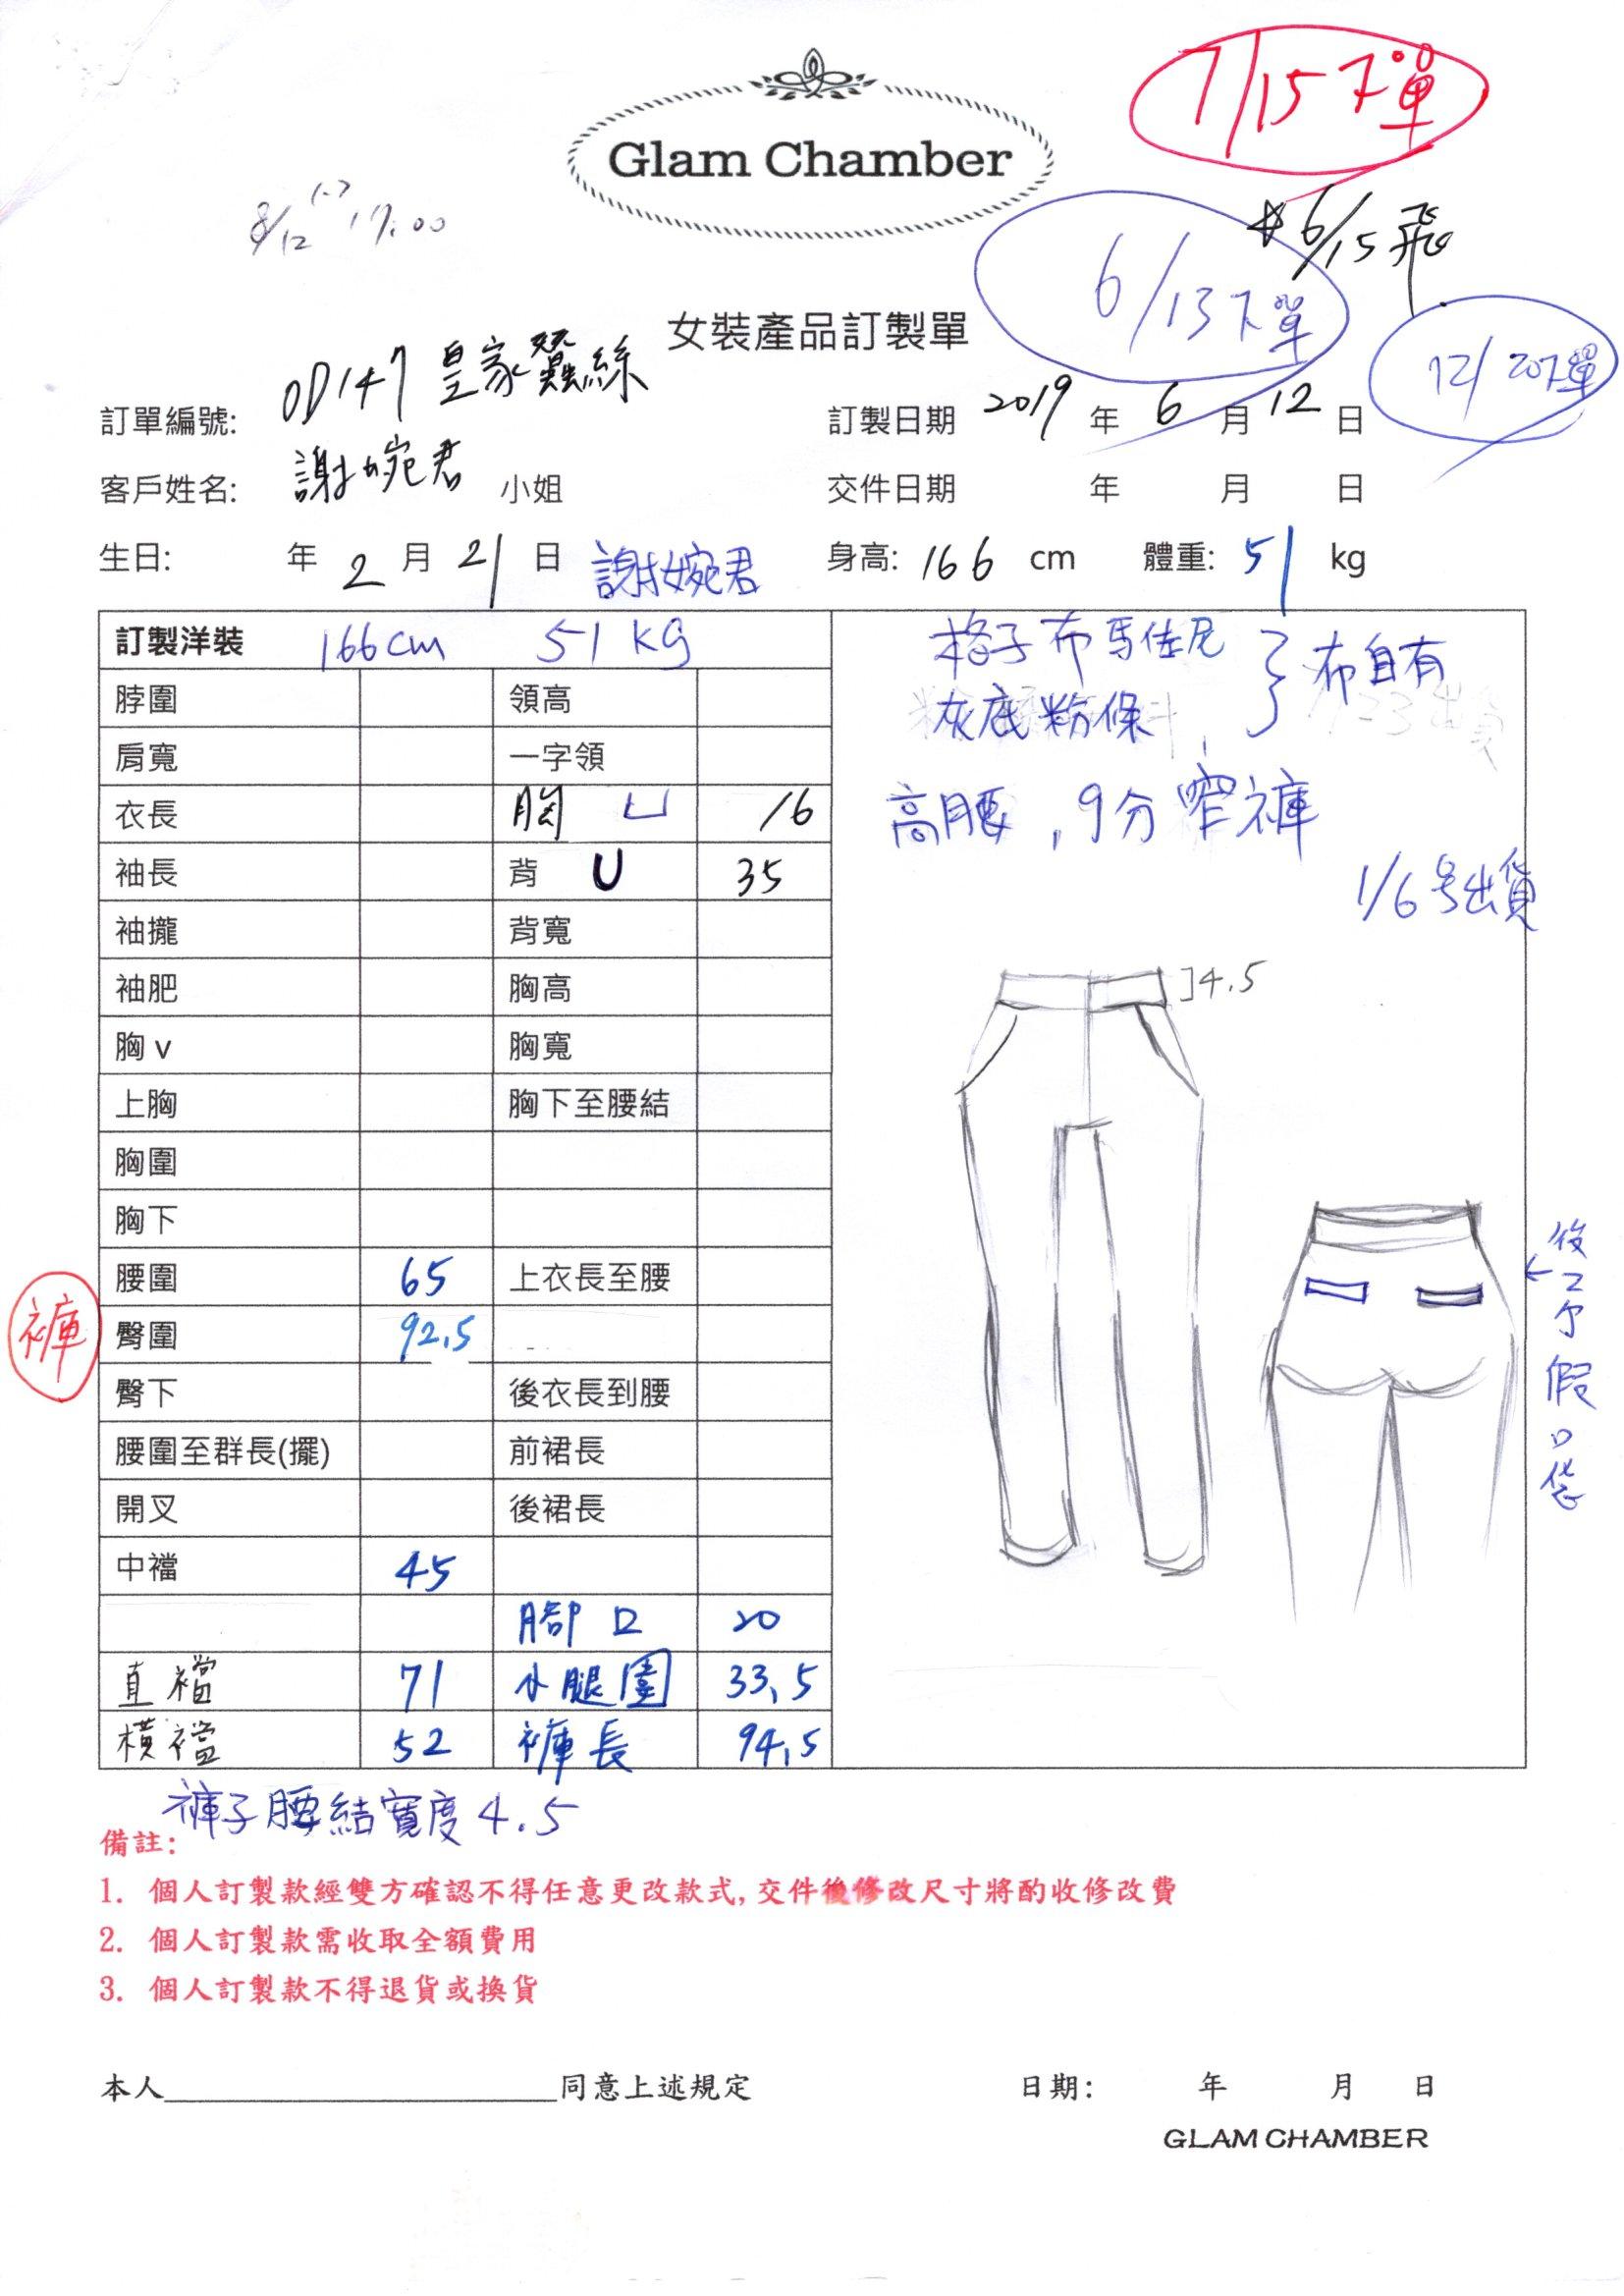 7/15下單
Glam Chamber
8/12 17:00
6/15飛
6/13下單
女裝產品訂製單
12/20下單
訂單編號: OD147 皇家蠶絲
訂製日期 2019 年 6 月 12 日
客戶姓名: 謝婉君 小姐
交件日期 年 月 日
生日: 年 2 月 21 日 謝婉君
身高: 166 cm 體重: 51 kg
訂製洋裝 166cm 51 kg
脖圍 領高
肩寬 一字領
衣長 胸 凵 16
袖長 背 U 35
袖攏 背寬
袖肥 胸高
胸 v 胸寬
上胸 胸下至腰結
胸圍
胸下
腰圍 65 上衣長至腰
褲
臀圍 92.5
臀下 後衣長到腰
腰圍至群長(擺) 前裙長
開叉 後裙長
中襠 45
腳口 20
直襠 71 小腿圍 33.5
橫襠 52 褲長 94.5
格子布馬佳尼
灰底粉條
布自有
高腰,9分窄褲
1/6号出貨
4.5
假口袋
褲子腰結寬度4.5
備註:
1. 個人訂製款經雙方確認不得任意更改款式,交件後修改尺寸將酌收修改費
2. 個人訂製款需收取全額費用
3. 個人訂製款不得退貨或換貨
本人 同意上述規定
日期: 年 月 日
GLAM CHAMBER